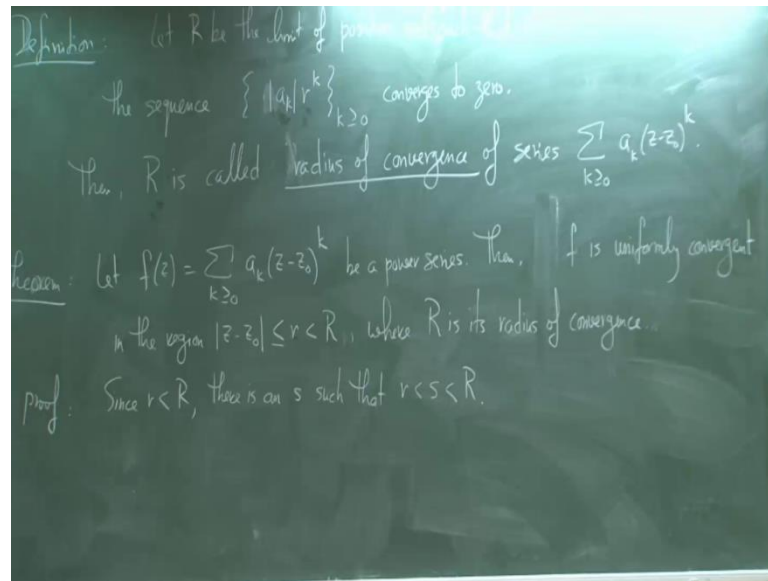 Definition: Let R be the limit of
the sequence { |a_k| r^k }_{k≥0} converges to zero.
Then, R is called radius of convergence of series ∑_{k≥0} a_k(z-z_0)^k.
Theorem: Let f(z) = ∑_{k≥0} a_k(z-z_0)^k be a power series. Then, f is uniformly convergent
in the region |z-z_0| ≤ r < R, where R is its radius of convergence.
Proof: Since r < R, there is an s such that r < s < R.